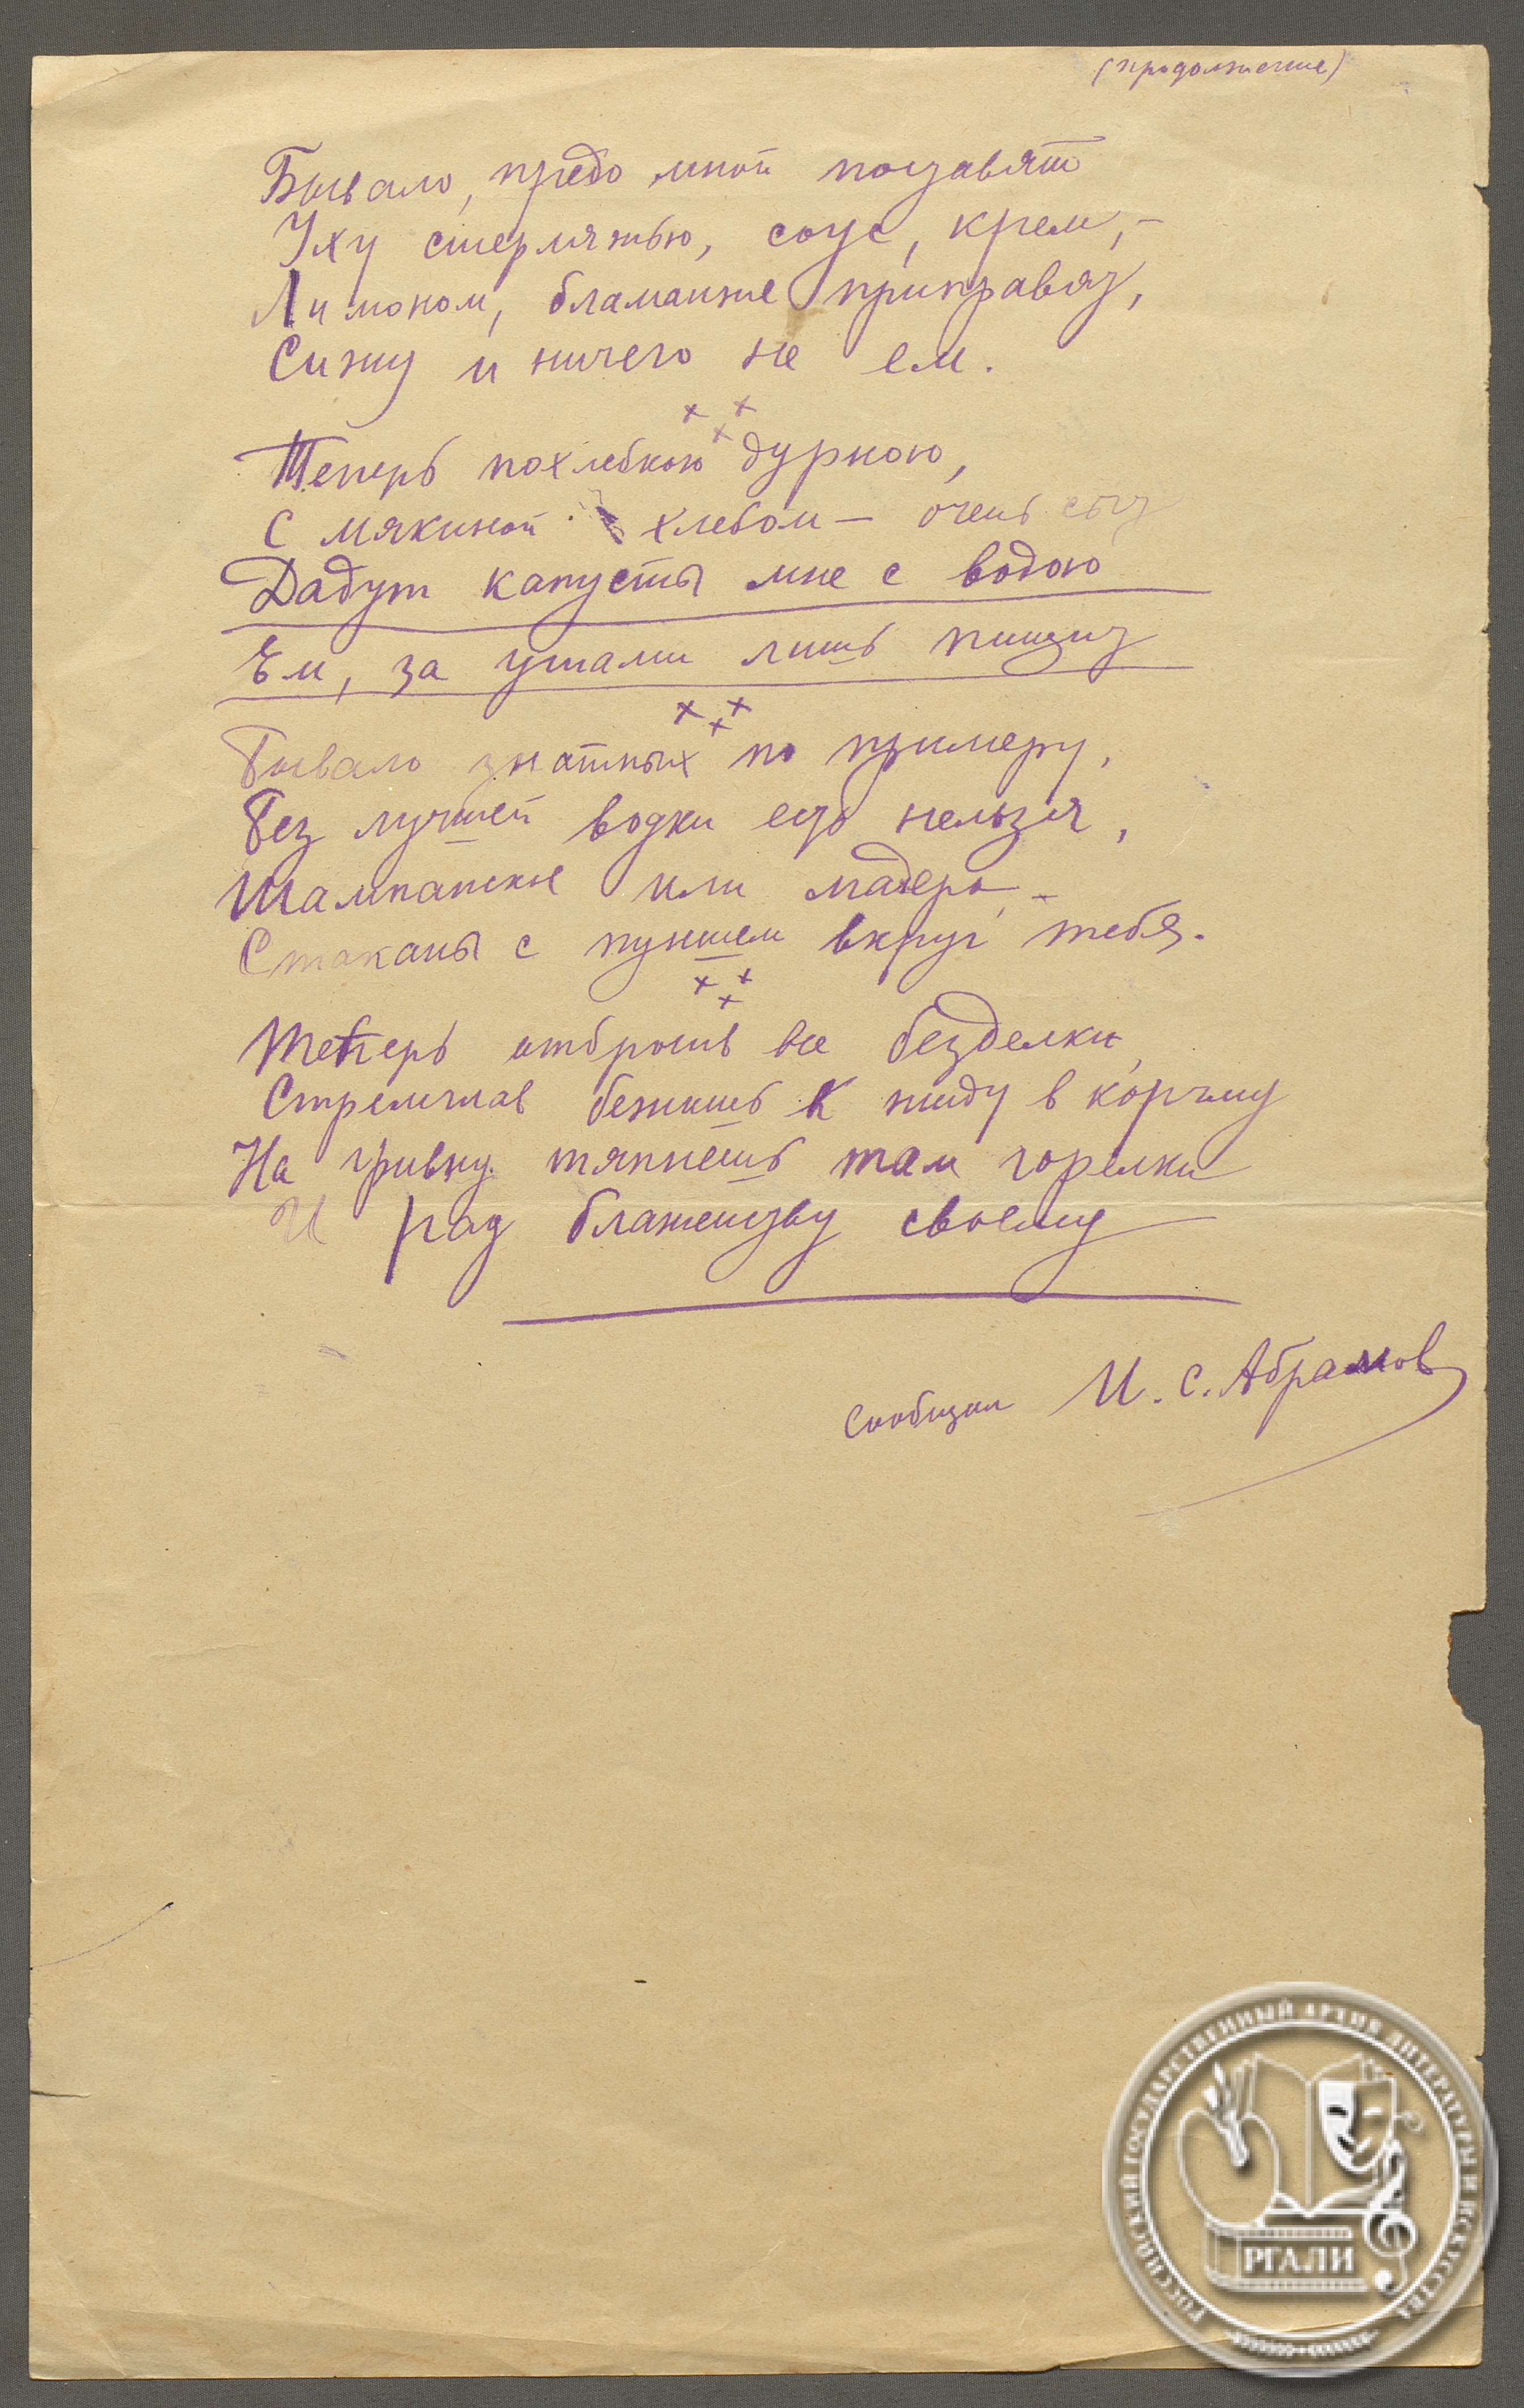 (продолжение)
Бывало, предо мной поставят
Уху стерляжью, соус, крем, –
Лимоном, бламанже приправят,
Сижу и ничего не ем.
× × ×
Теперь похлебкою дурною,
С мякиной хлебом – очень сыт
Дадут капусты мне с водою
Ем, за ушами лишь пищит
× × ×
Бывало знатных по примеру,
Без лучшей водки есть нельзя,
Шампанское или мадера, –
Стаканы с пуншем вкруг тебя.
× × ×
Теперь отбросив все безделки,
Стремглав бежишь к жиду в корчму
На гривну тяпнешь там горелки
И рад блаженству своему
Сообщил И. С. Абрамов
РОССИЙСКИЙ ГОСУДАРСТВЕННЫЙ АРХИВ ЛИТЕРАТУРЫ И ИСКУССТВА
РГАЛИ